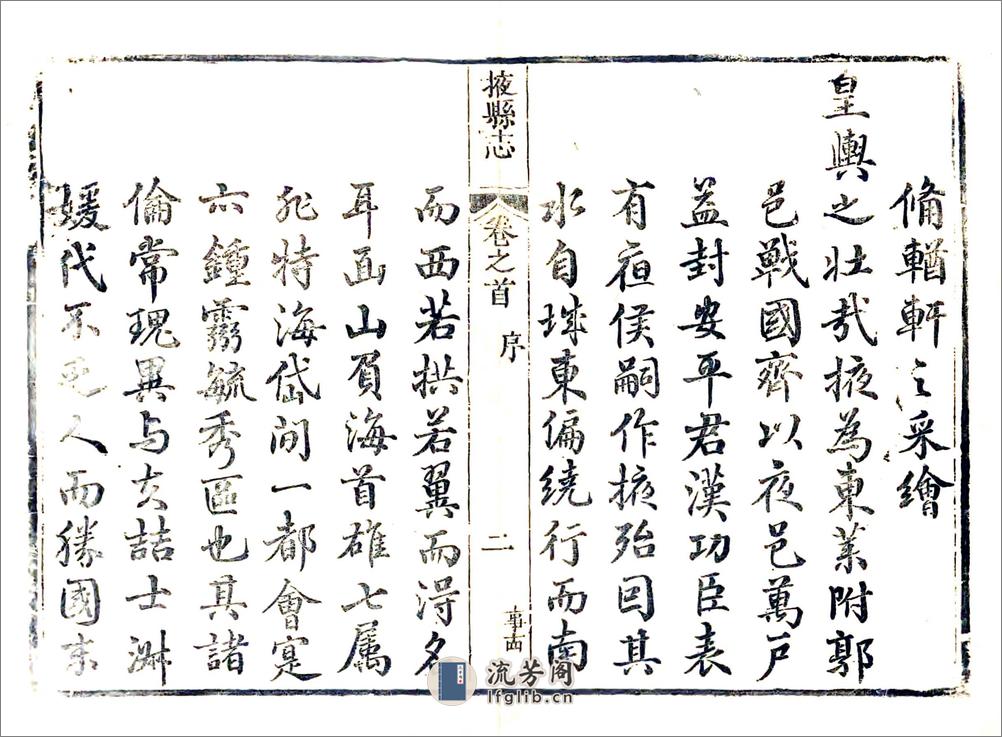 脩輶軒之采繪
皇輿之壯哉掖為東萊附郭
邑戰國齊以夜邑萬戶
益封安平君漢功臣表
有夜侯嗣作掖殆因其
水自城東偏繞行而南
掖縣志
卷之首
序
二
而西若拱若翼而得名
耳面山負海首雄七属
非特海岱間一都會寔
亦鍾靈毓秀區也其諸
倫常瑰異与夫喆士淋
媛代不乏人而勝國末
流芳阁
lfglib.cn